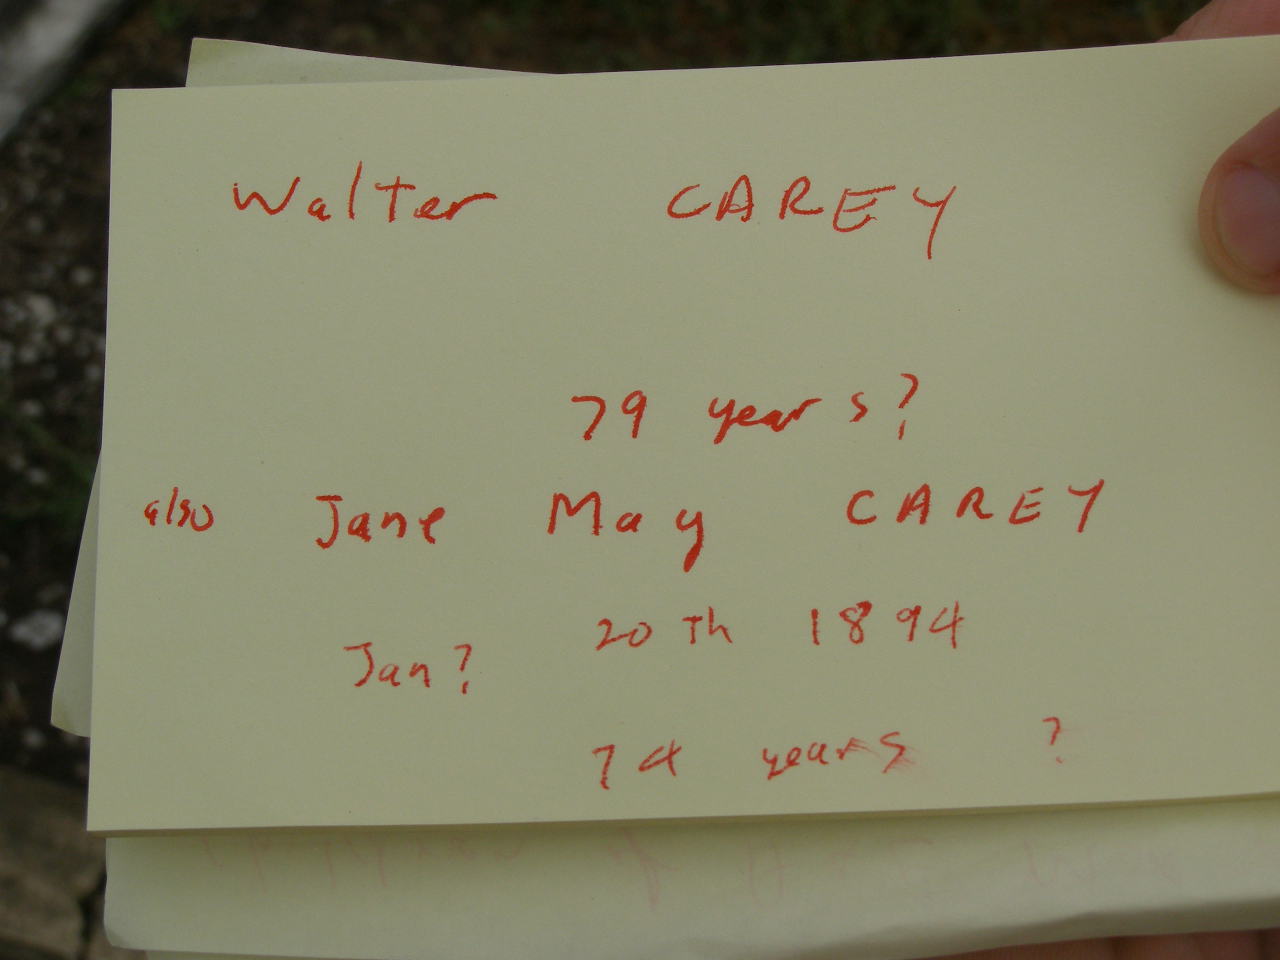 Walter CAREY
79 years?
also Jane May CAREY
Jan? 20th 1894
74 years ?